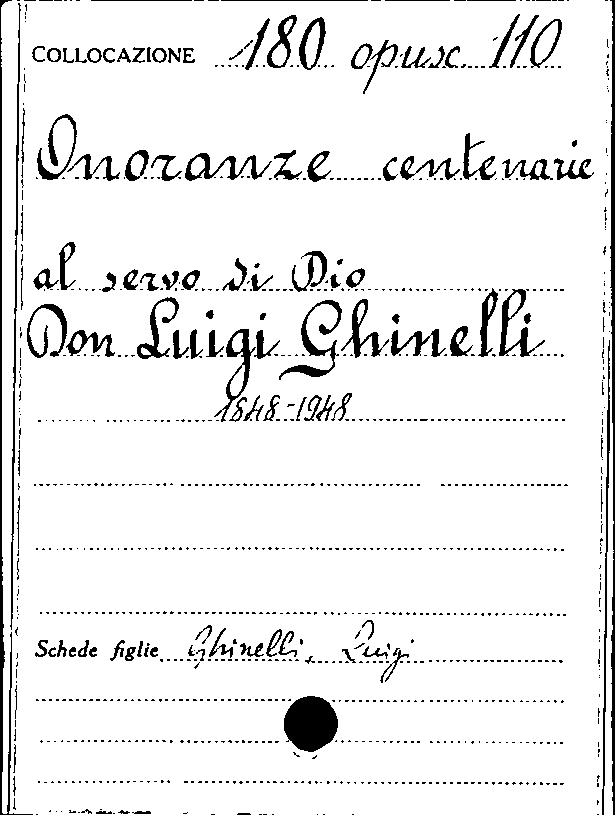 COLLOCAZIONE 180 opusc. 110
Onoranze centenarie
al servo di Dio
Don Luigi Ghinelli
1848-1948
Schede figlie Ghinelli, Luigi